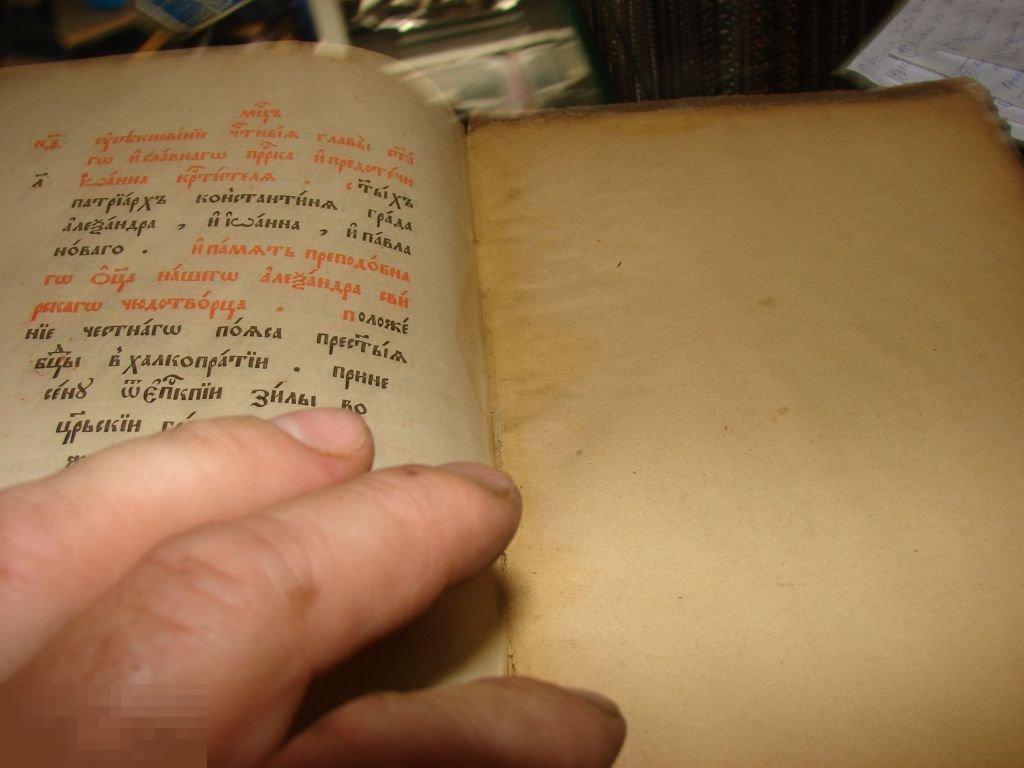 мцⷭ҇ъ
кд҃ ᲂу҆сѣкнове́нїе чⷭ҇тны́ѧ главы̀ ст҃а
гѡ и҆ сла́внагѡ прⷪ҇рка и҆ предоте́чи
л҃ і҆ѡа́нна крⷭ҇ти́телѧ . ст҃ы́хъ
патрїа́рхъ конста́нтїна гра́да
а҆леѯа́ндра , и҆ і҆ѡа́нна , и҆ па́вла
но́ваго . и҆ па́мѧть преподо́бна
гѡ ѻ҆ц҃а̀ на́шегѡ а҆леѯа́ндра сви́
рскагѡ чюдотво́рца . положе́
нїе честна́гѡ по́ѧса прест҃ы́ѧ
бцⷣы в҆ халкопра́тїи . прине
се́нꙋ ѿ є҆пⷭ҇кпїи зи́лы во
црⷭ҇ьскїи